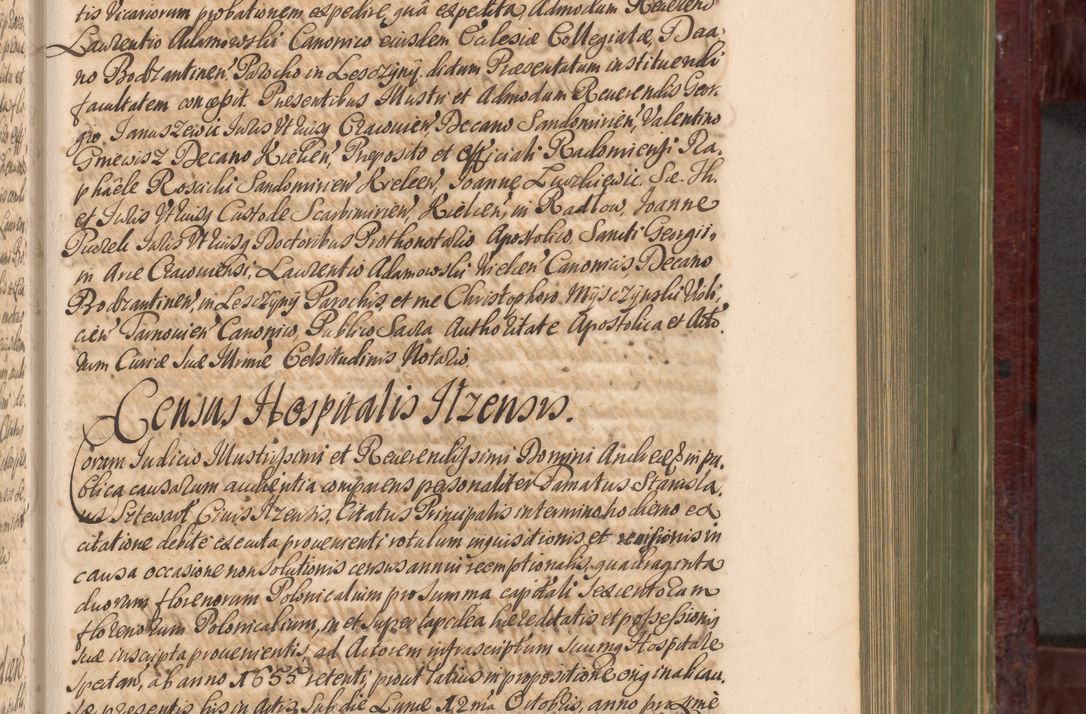 tis Vicariorum probationem expedire, qua expedita, Admodum Reverendo
Laurentio Adamowski Canonico eiusdem Eclesiæ Collegiatæ, Daa,
no Bodzantinen, Parocho in Lesczyny, dictum Præsentatum instituendi
facultatem concessit. Præsentibus Illustri et Admodum Reuerendis Geor,
gio Januszewic Juris Vtriusq Cracouien, Decano Sandomirien, Valentino
Gniewisz Decano Kielcen, Preposito et Officiali Radomiensi, Ra,
phaele Rosicki Sandomirien Kielcen, Joanne Lupkiewic. Se. Th.
et Juris Vtriusq Custode Scarbimirien, Kielcen, in Radlow, Joanne
Juris Vtriusq Doctoribus Prothonotario Apostolico, Sancti Georgii,
in Arce Cracouiensi, Laurentio Adamowski Kielcen Canonicis Decano
Bodzantinen, in Lesczyny Parochis, et me Christophoro Myszczynski Visli,
cien Tarnouien Canonico, Publico Sacra Authoritate Apostolica et Acto,
rum Curiæ Suæ Illrmæ Celsitudinis Notario.
Census Hospitalis Ilzensis.
Coram Judicio Illustrissimi et Reuerendissimi Domini Andreæ Eppi in pu,
blica causarum audientia comparens personaliter Famatus Stanisla,
us Sztewart, Ciuis Ilzensis, Citatus Principalis in termino hodierno ex
citatione debite executa prouenienti rotulum inquisitionis et in
causa occasione non solutionis census annui reemptionalis, quadraginta
duorum florenorum Polonicalium pro summa capitali Sexcentorum
florenorum Polonicalium, in et super lapidea hæreditatis et possessionis
suæ inscripta prouenientis, ad Actorem infrascriptum Hospitale
spectan, ab anno 1655 retenti, prout latius in propositione originali cau,
sæ præsentis his in Actis, Sub die Lunæ 12ma Octobris, anno proxime